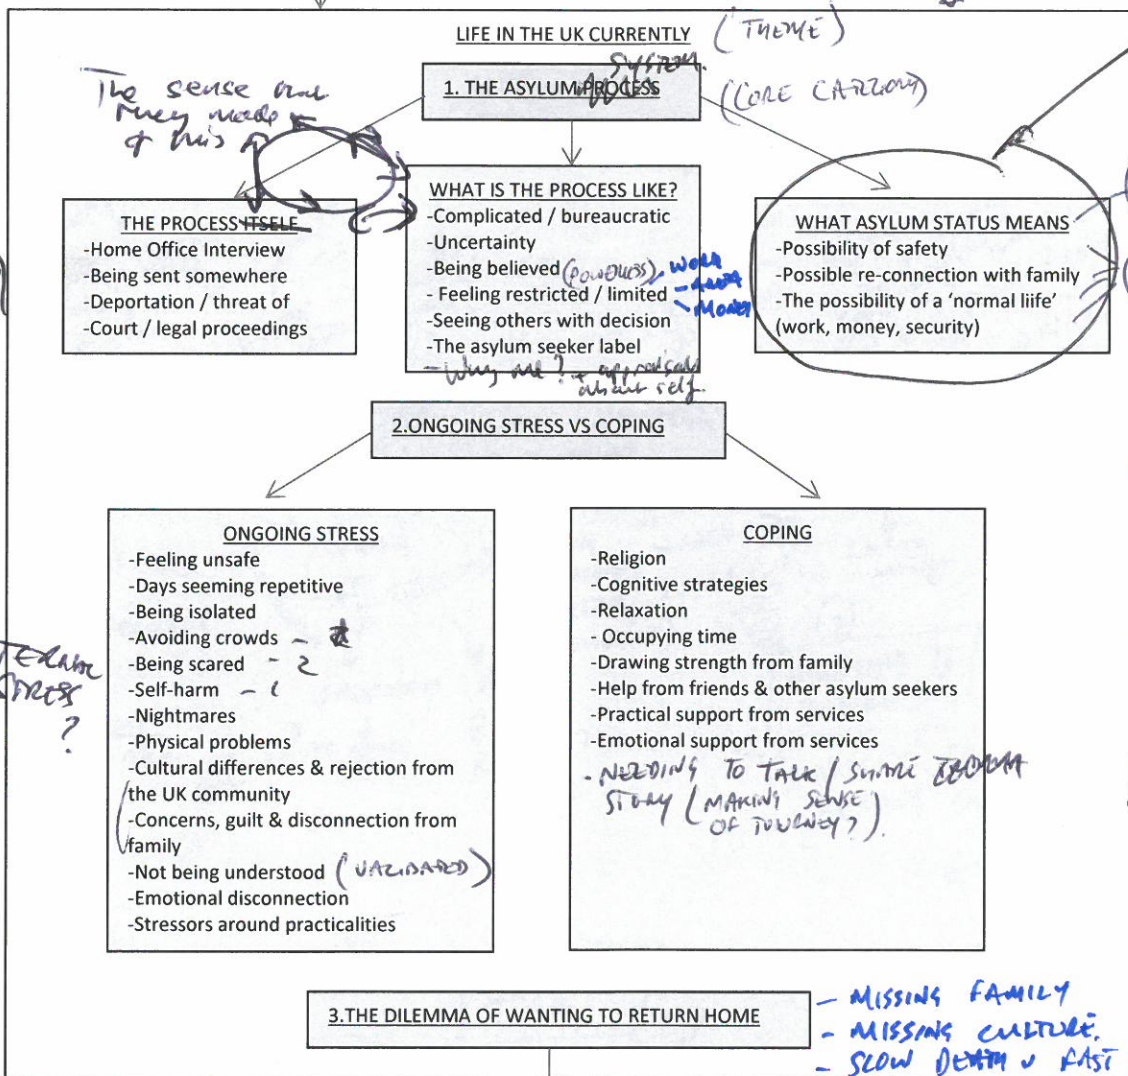 LIFE IN THE UK CURRENTLY (THEME)
SYSTEM.
1. THE ASYLUM PROCESS
(CORE
The sense
they made
of this
THE PROCESS ITSELF
-Home Office Interview
-Being sent somewhere
-Deportation / threat of
-Court / legal proceedings
WHAT IS THE PROCESS LIKE?
-Complicated / bureaucratic
-Uncertainty
-Being believed (POWERLESS) - WORK
- Feeling restricted / limited
- MONEY
-Seeing others with decision
-The asylum seeker label
- Why me? + appraisals
about self.
WHAT ASYLUM STATUS MEANS
-Possibility of safety
-Possible re-connection with family
-The possibility of a ‘normal liife’
(work, money, security)
2.ONGOING STRESS VS COPING
ONGOING STRESS
-Feeling unsafe
-Days seeming repetitive
-Being isolated
-Avoiding crowds -
-Being scared - 2
-Self-harm - 1
-Nightmares
-Physical problems
-Cultural differences & rejection from
the UK community
-Concerns, guilt & disconnection from
family
-Not being understood (VALIDATED)
-Emotional disconnection
-Stressors around practicalities
STRESS
?
COPING
-Religion
-Cognitive strategies
-Relaxation
- Occupying time
-Drawing strength from family
-Help from friends & other asylum seekers
-Practical support from services
-Emotional support from services
- NEEDING TO TALK / SHARE
STORY (MAKING SENSE
OF JOURNEY?).
3.THE DILEMMA OF WANTING TO RETURN HOME
- MISSING FAMILY
- MISSING CULTURE.
- SLOW DEATH v FAST